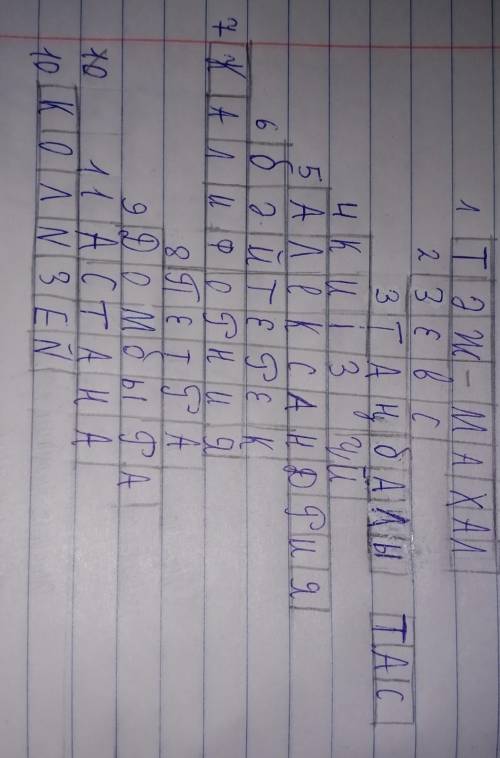 1 Тәж-МАХАЛ
2 ЗЕВС
3 ТАҢбАЛЫ ТАС
4 КИІЗ ҮЙ
5 АЛЕКСАНДРИЯ
6 бәйТЕРЕК
7 КАЛИФОРНИЯ
8 ПЕТРА
9 ДОМбЫРА
11 АСТАНА
10 КОЛИЗЕЙ